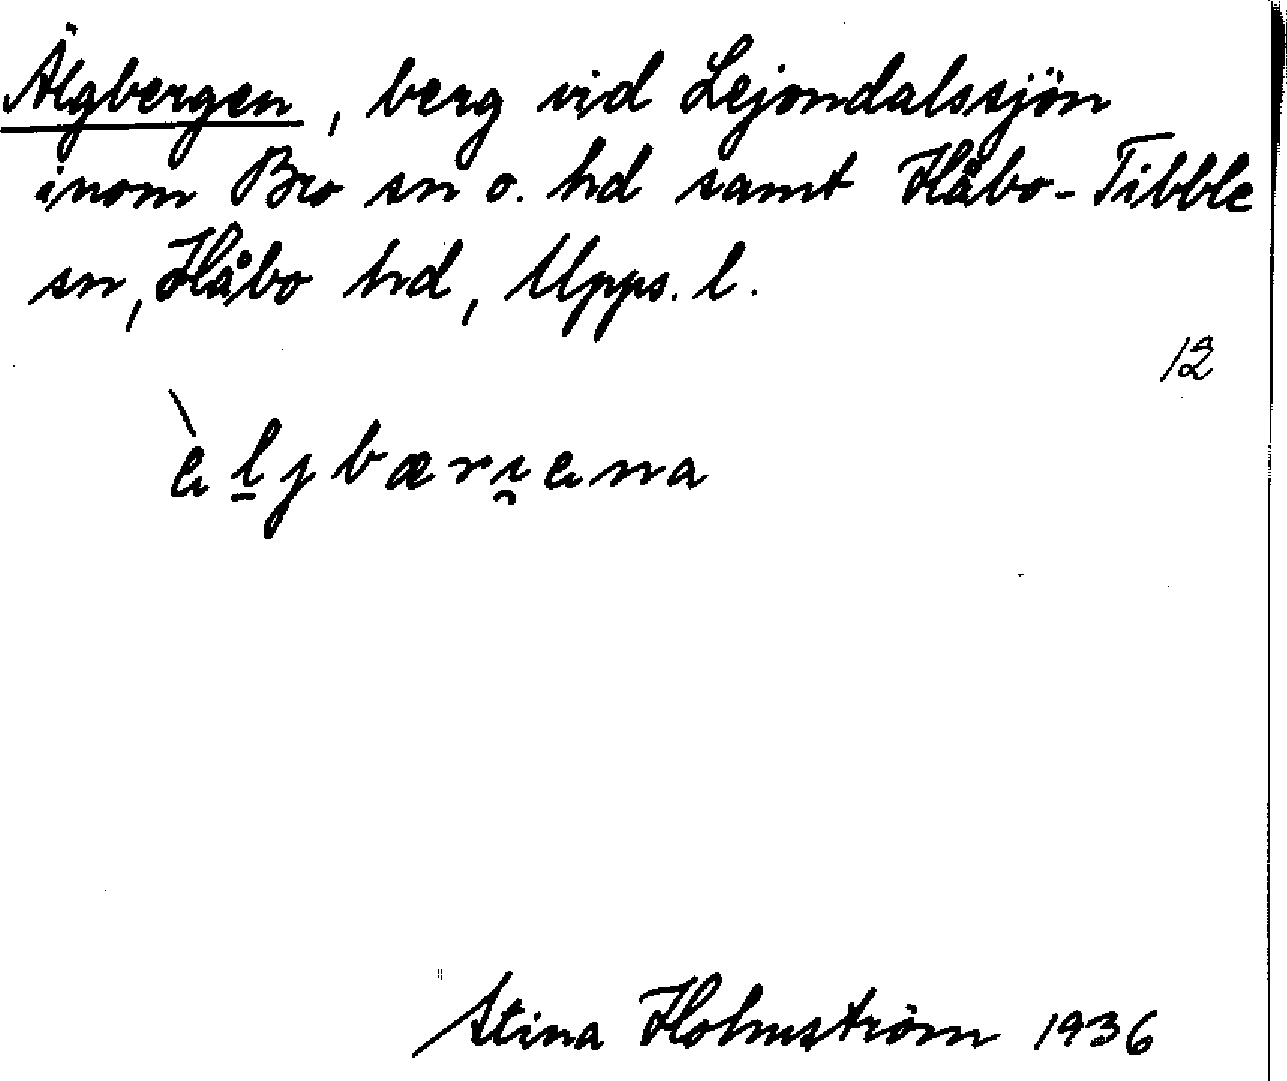 Älgbergen, berg vid Lejondalssjön
inom Bro sn o. hd samt Håbo-Tibble
sn, Håbo hd, Upps. l.
12
Stina Holmström 1936